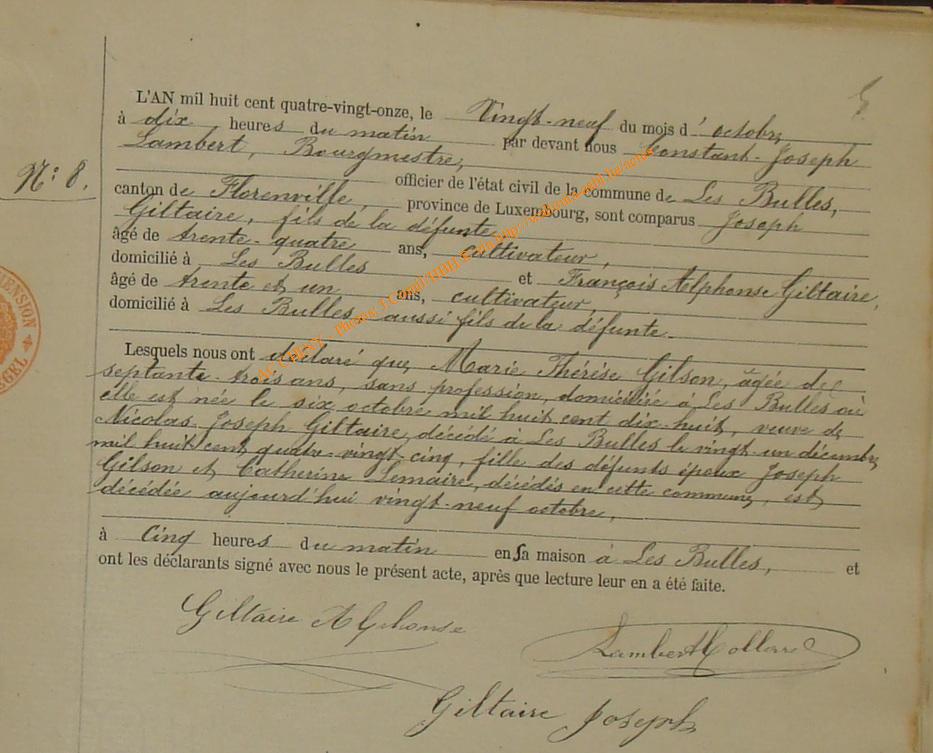 L'AN mil huit cent quatre-vingt-onze, le Vingt-neuf du mois d'octobre
à dix heures du matin par devant nous Constant-Joseph
Lambert, Bourgmestre,
N°: 8.
officier de l'état civil de la commune de Les Bulles,
canton de Florenville, province de Luxembourg, sont comparus Joseph
Giltaire, fils de la défunte
âgé de trente-quatre ans, cultivateur,
domicilié à Les Bulles et François Alphonse Giltaire,
âgé de trente et un ans, cultivateur,
domicilié à Les Bulles aussi fils de la défunte
Lesquels nous ont déclaré que Marie Thérèse Gilson, âgée de
septante-trois ans, sans profession, domiciliée à Les Bulles où
elle est née le six octobre mil huit cent dix-huit, veuve de
Nicolas Joseph Giltaire, décédé à Les Bulles le vingt-un décembre
mil huit cent quatre-vingt cinq, fille des défunts époux Joseph
Gilson et Catherine Lemaire, décédés en cette commune, est
décédée aujourd'hui vingt-neuf octobre,
à Cinq heures du matin en sa maison à Les Bulles, et
ont les déclarants signé avec nous le présent acte, après que lecture leur en a été faite.
Giltaire Alphonse
Lambert Collard
Giltaire Joseph